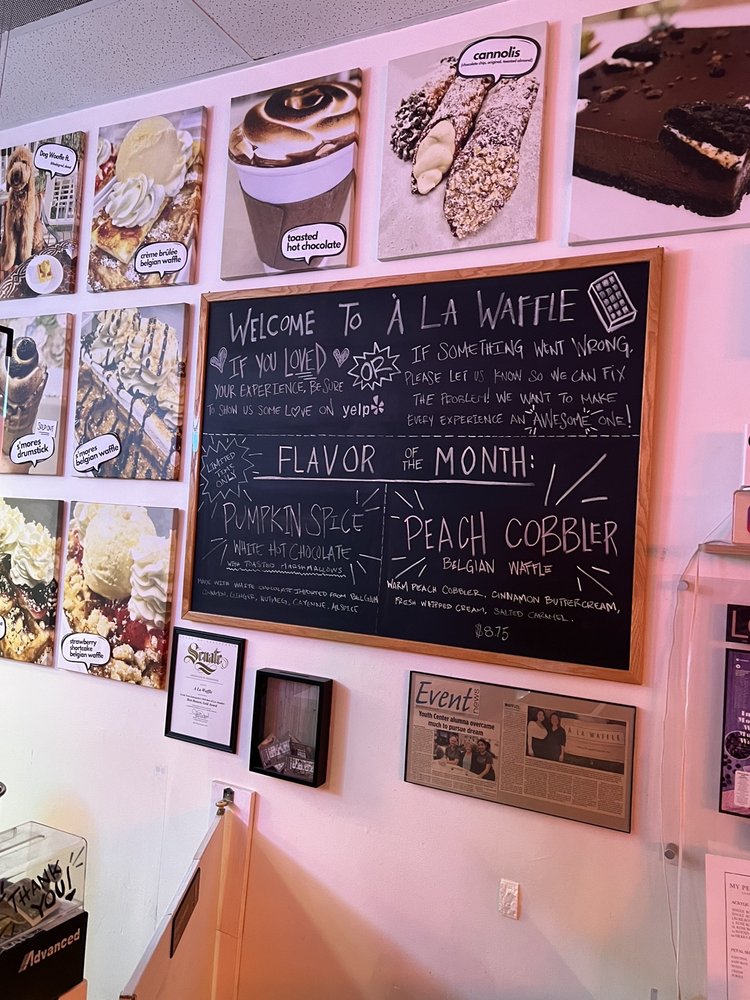 Dog Woofle ft.
crème brûlée
belgian waffle
toasted
hot chocolate
cannolis
(chocolate chip, original, toasted almond)
s'mores
drumstick
s'mores
belgian waffle
strawberry
shortcake
belgian waffle
WELCOME TO À LA WAFFLE
IF YOU LOVED
YOUR EXPERIENCE, BE SURE
TO SHOW US SOME LOVE ON yelp
OR
IF SOMETHING WENT WRONG,
PLEASE LET US KNOW SO WE CAN FIX
THE PROBLEM! WE WANT TO MAKE
EVERY EXPERIENCE AN AWESOME ONE!
LIMITED
TIME
ONLY!
FLAVOR OF THE MONTH:
PUMPKIN SPICE
WHITE HOT CHOCOLATE
WITH TOASTED MARSHMALLOWS
MADE WITH WHITE CHOCOLATE IMPORTED FROM BELGIUM
CINNAMON, GINGER, NUTMEG, CAYENNE, ALLSPICE
PEACH COBBLER
BELGIAN WAFFLE
WARM PEACH COBBLER, CINNAMON BUTTERCREAM,
FRESH WHIPPED CREAM, SALTED CARAMEL.
$8.75
Senate
À La Waffle
Event news
Youth Center alumna overcame
much to pursue dream
À LA WAFFLE
THANK
YOU!
Advanced